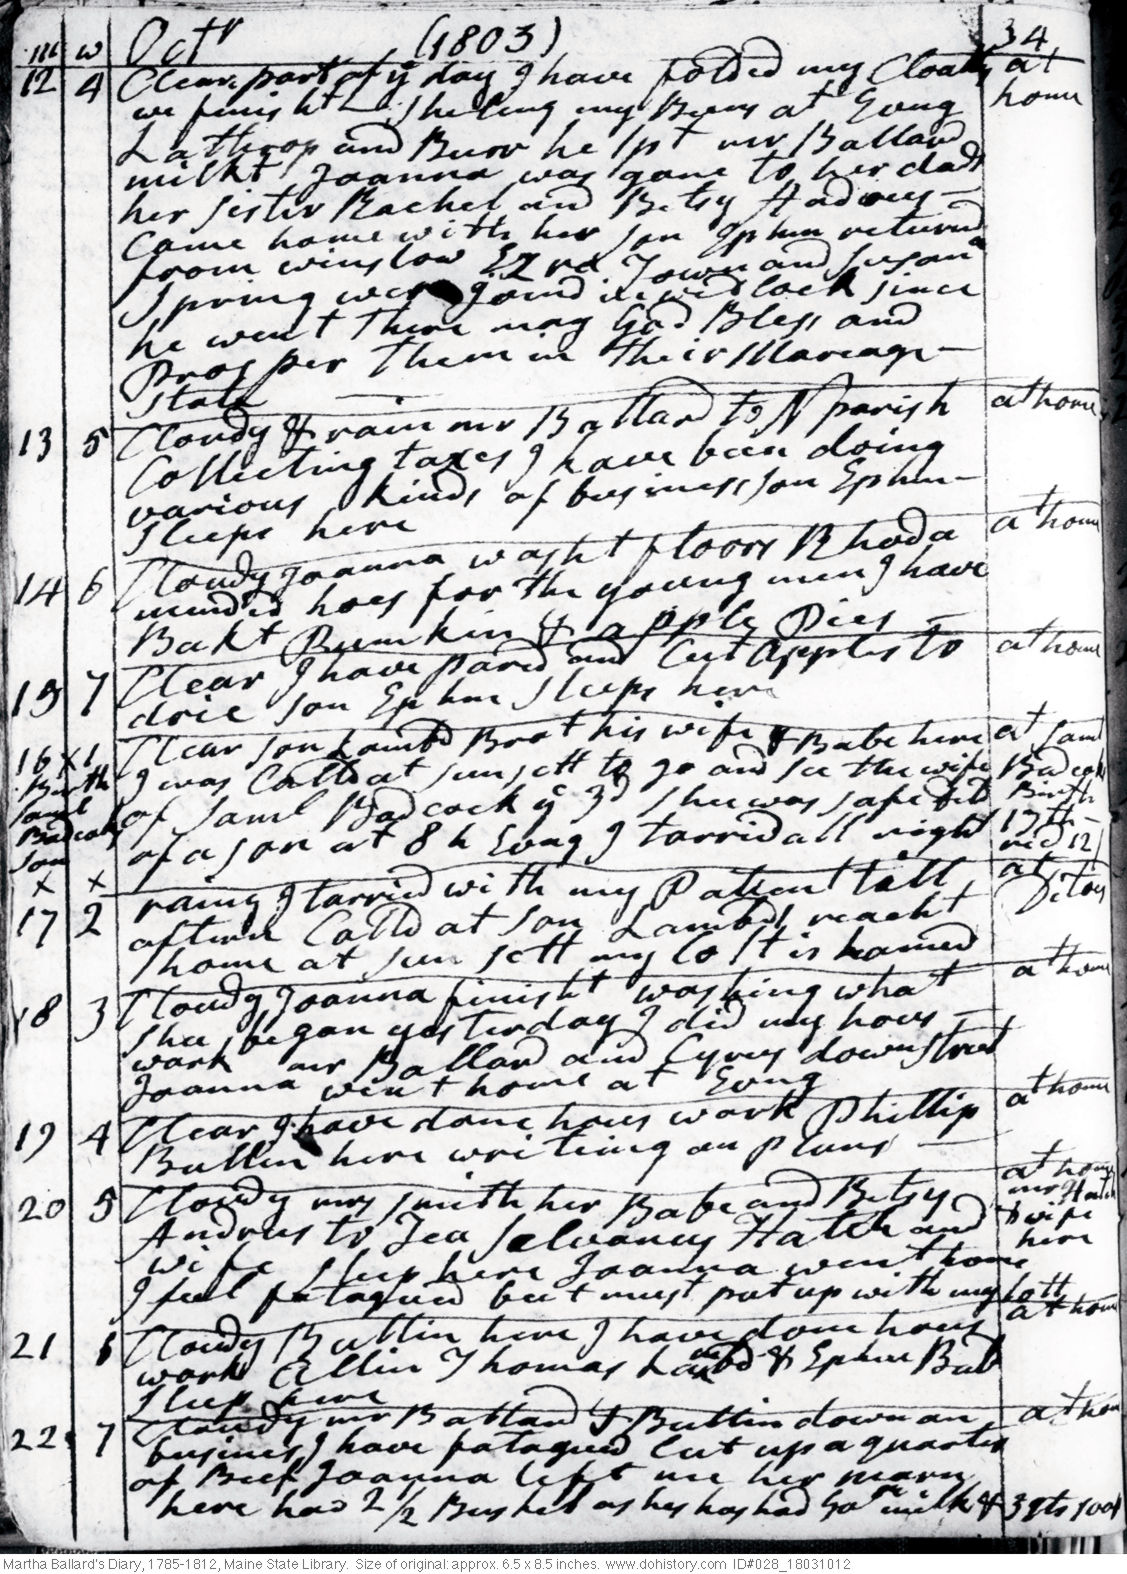 m w Octr (1803) 34
12 4 Clear, part of ye day I have folded my Cloaths at
we finisht Shelling my Beens at Evng home
Lathrop and Burr helpt mr Ballard
milkt Joanna was gone to her dads
her sister Rachel and Betsy Andrews
Came home with her son Ephm returnd
from winslow Ezra Town and Susan
Spring were joind in wedlock since
he went There may God Bless and
Prosper Them in Their Marcage
State
13 5 Cloudy & rain mr Ballard to N parish at home
Collecting taxes I have been doing
various kinds of business son Ephm
sleeps here
14 6 Cloudy Joanna washt floors Rhoda at home
minded hoes for the young men I have
Bakt Pumkin & apple Pies
15 7 Clear I have pared and Cut Apples to at home
drie son Ephm sleeps here
16 x 1 Clear son Lambd Brot his wife & Babe here at Saml
Birth I was Calld at sun sett to go and see the wife Badcoks
Saml of Saml Badcock ye 3d shee was safe dld Birth
Badcoks of a son at 8 h Evng I tarried all night 17th
son recd 12/
x x
17 2 rainy I tarried with my Patient till at Ditoes
aftern Calld at son Lambds reacht
home at sun sett my Colt is lamed
18 3 Cloudy Joanna finisht washing what at home
shee began yesterday I did my hous
work mr Ballard and Cyrus down street
Joanna went home at Evng
19 4 Clear I have done hous work Phillip at home
Bullin here writeing on plans
20 5 Cloudy mrs Smith her Babe and Betsy at home
Andrus to Tea Selvanus Hatch and mr Hatch
wife sleep here Joanna went home & wife
I feel fatagued but must put up with my lott here
21 6 Cloudy Bullin here I have done hous at home
work Allin Thomas Lambd & Ephm Bal
sleep here
22 7 Cloudy mr Ballard & Bullin down on at hom
business I have fatagued Cut up a quarter
of Beef Joanna left me her marm
here had 2 1/2 Bushel as hes has had Ga milk & 3 qts
Martha Ballard's Diary, 1785-1812, Maine State Library. Size of original: approx. 6.5 x 8.5 inches. www.dohistory.com ID#028_18031012